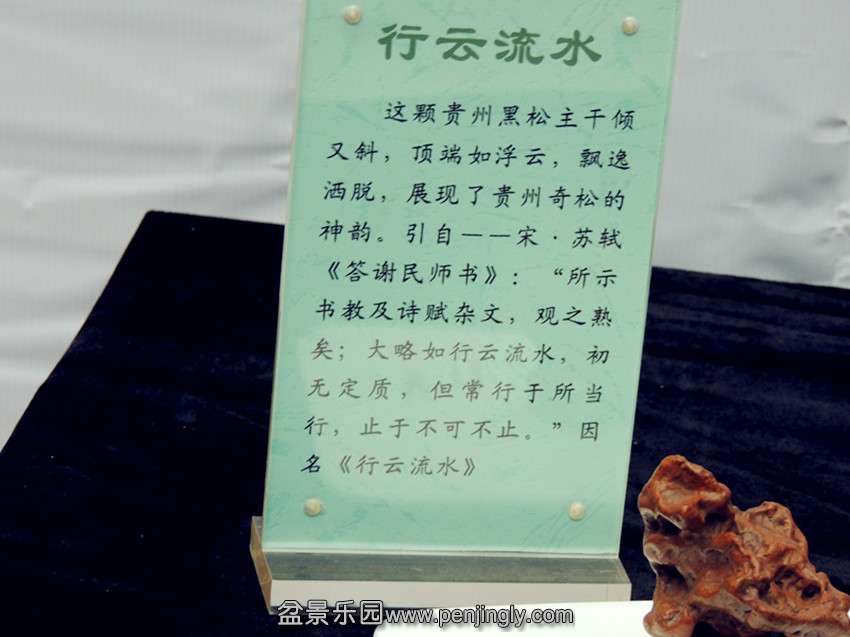 行云流水
这颗贵州黑松主干倾
又斜，顶端如浮云，飘逸
洒脱，展现了贵州奇松的
神韵。引自——宋·苏轼
《答谢民师书》：“所示
书教及诗赋杂文，观之熟
矣；大略如行云流水，初
无定质，但常行于所当
行，止于不可不止。”因
名《行云流水》
盆景乐园www.penjingly.com